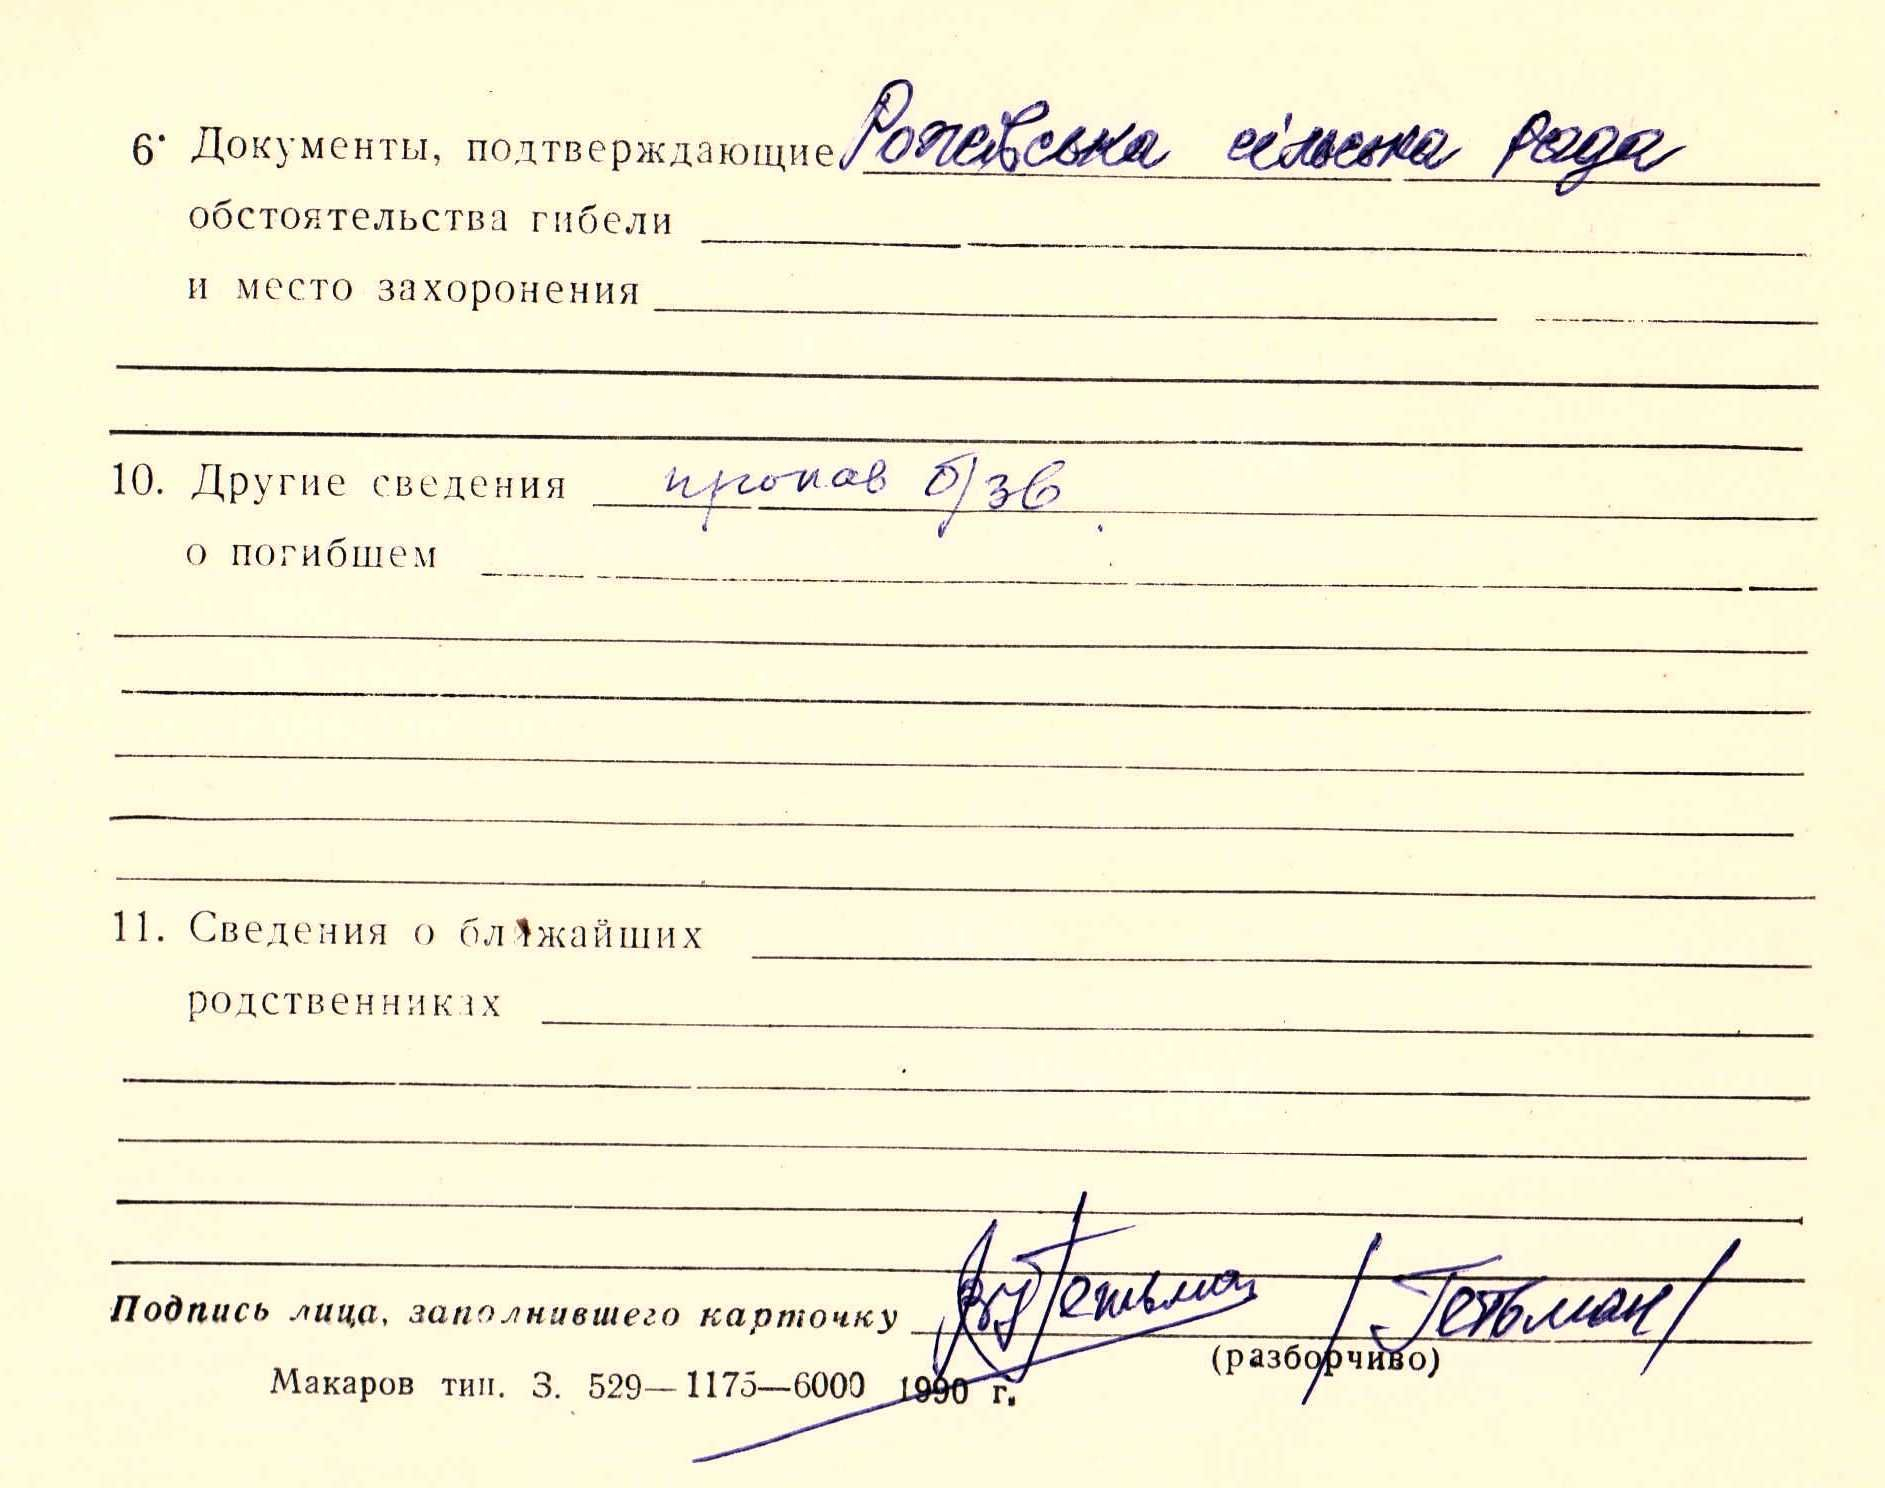 6. Документы, подтверждающие Рожівська сільська рада
обстоятельства гибели
и место захоронения
10. Другие сведения пропав б/зв
о погибшем
11. Сведения о ближайших
родственниках
Подпись лица, заполнившего карточку Гетьман /Гетьман/
(разборчиво)
Макаров тип. З. 529—1175—6000 1990 г.